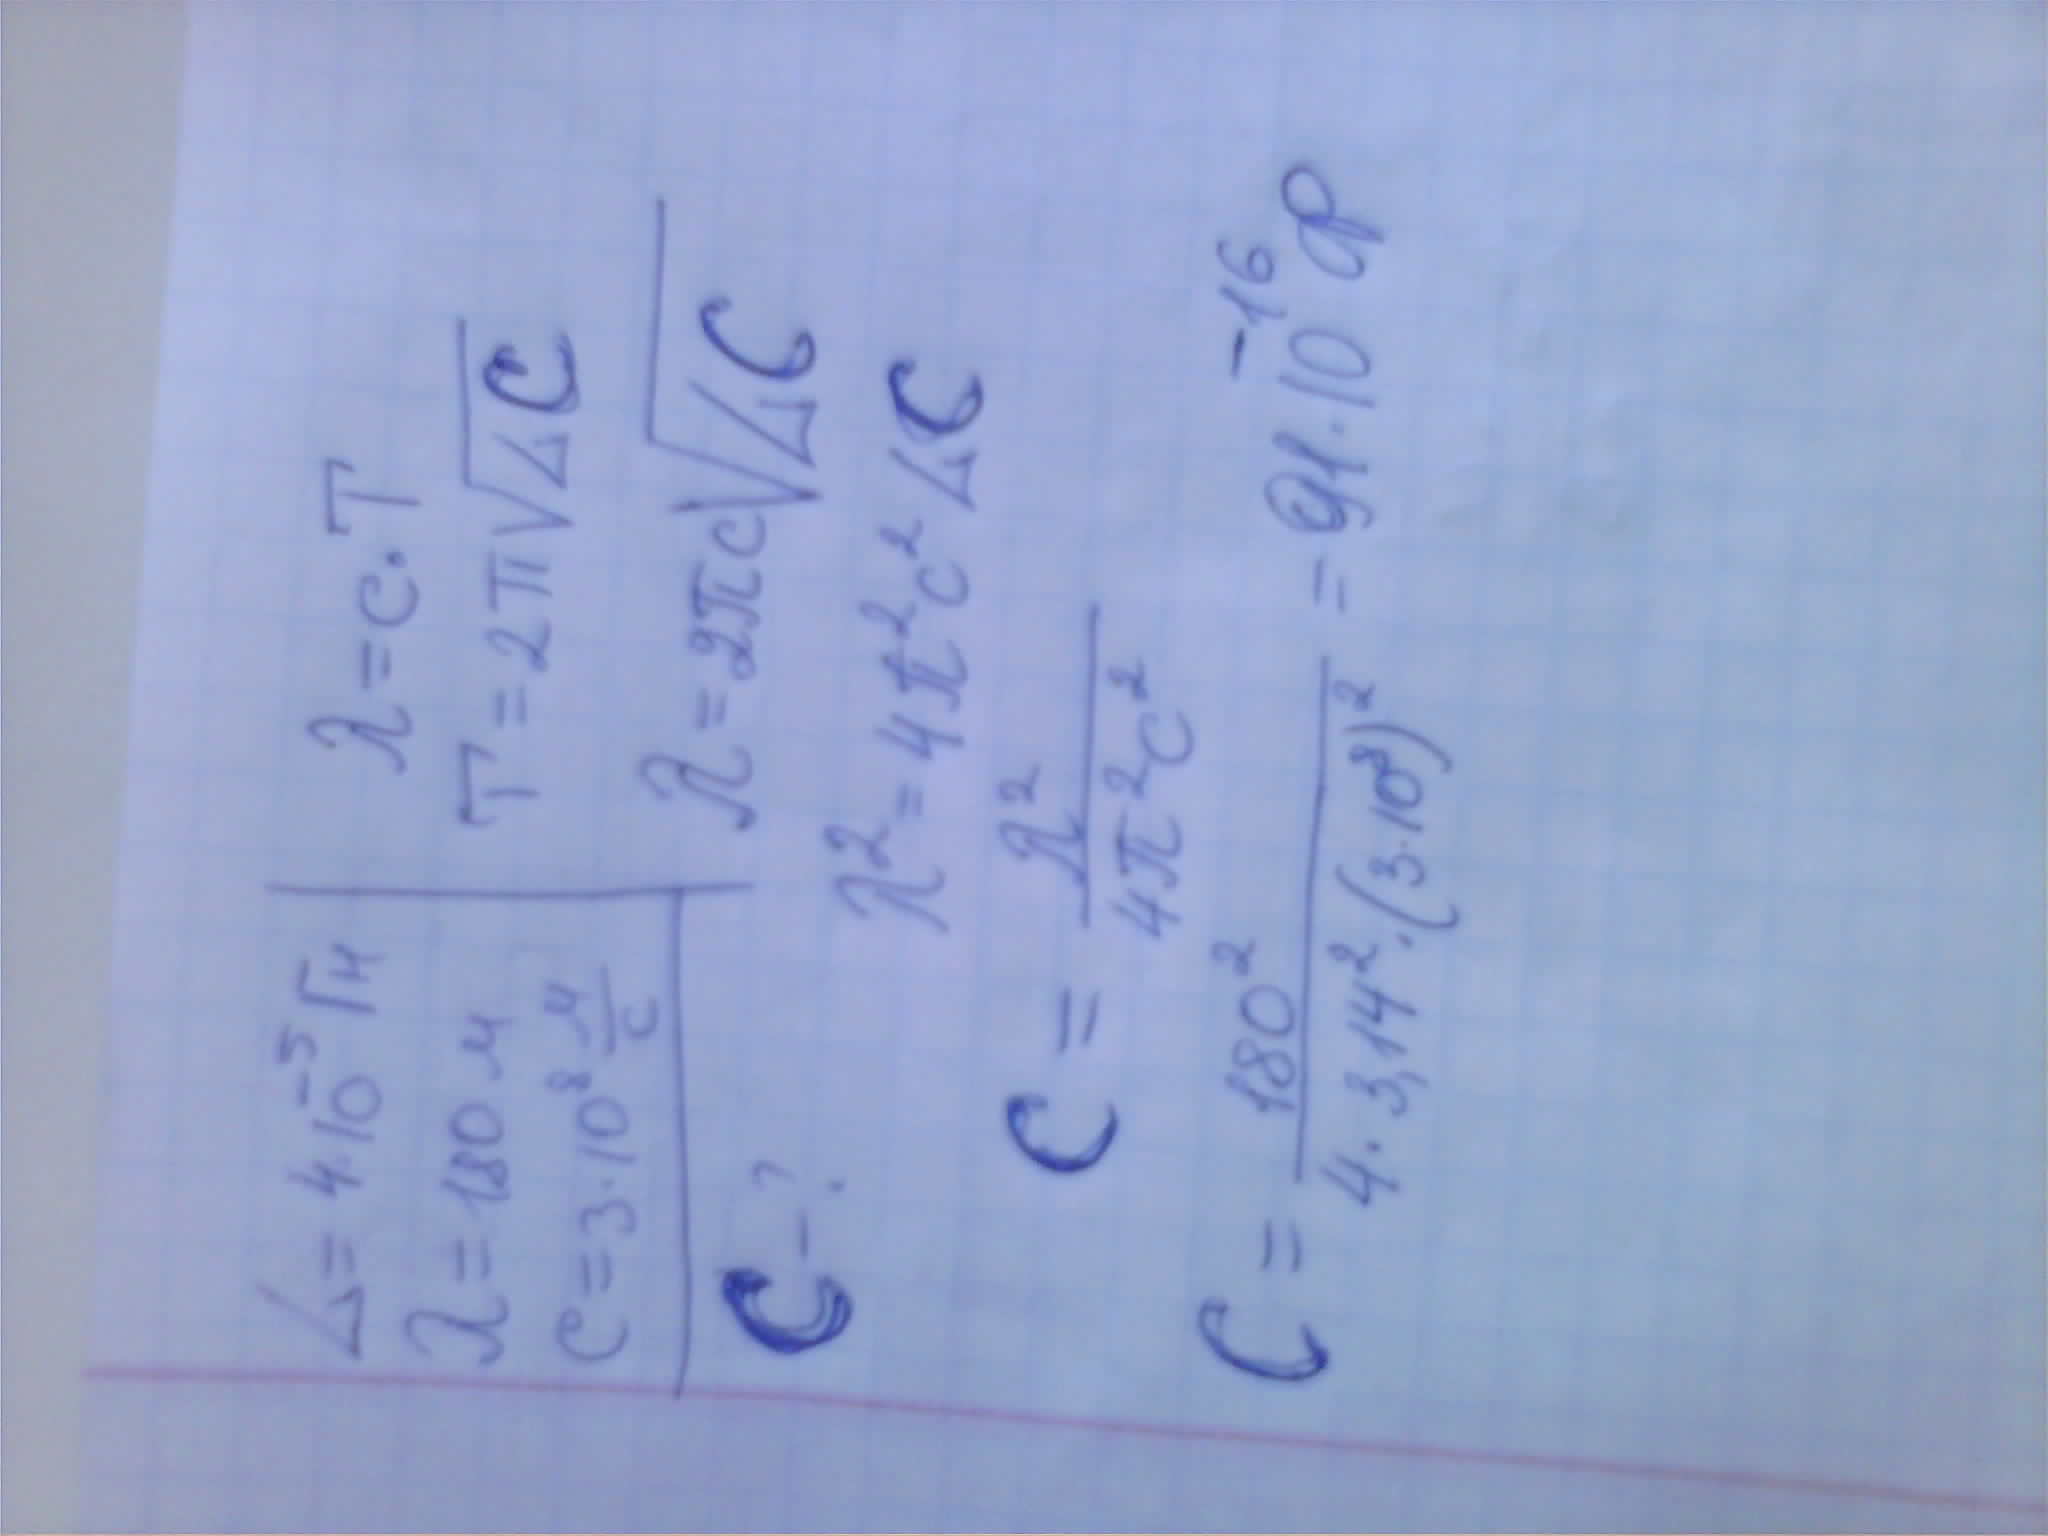 L = 4·10⁻⁵ Гн
λ = 180 м
c = 3·10⁸ м/с
C - ?
λ = c·T
T = 2π√LC
λ = 2πc√LC
λ² = 4π²c²LC
C = λ²/4π²c²
C = 180²/4·3,14²·(3·10⁸)² = 91·10⁻¹⁶ Ф